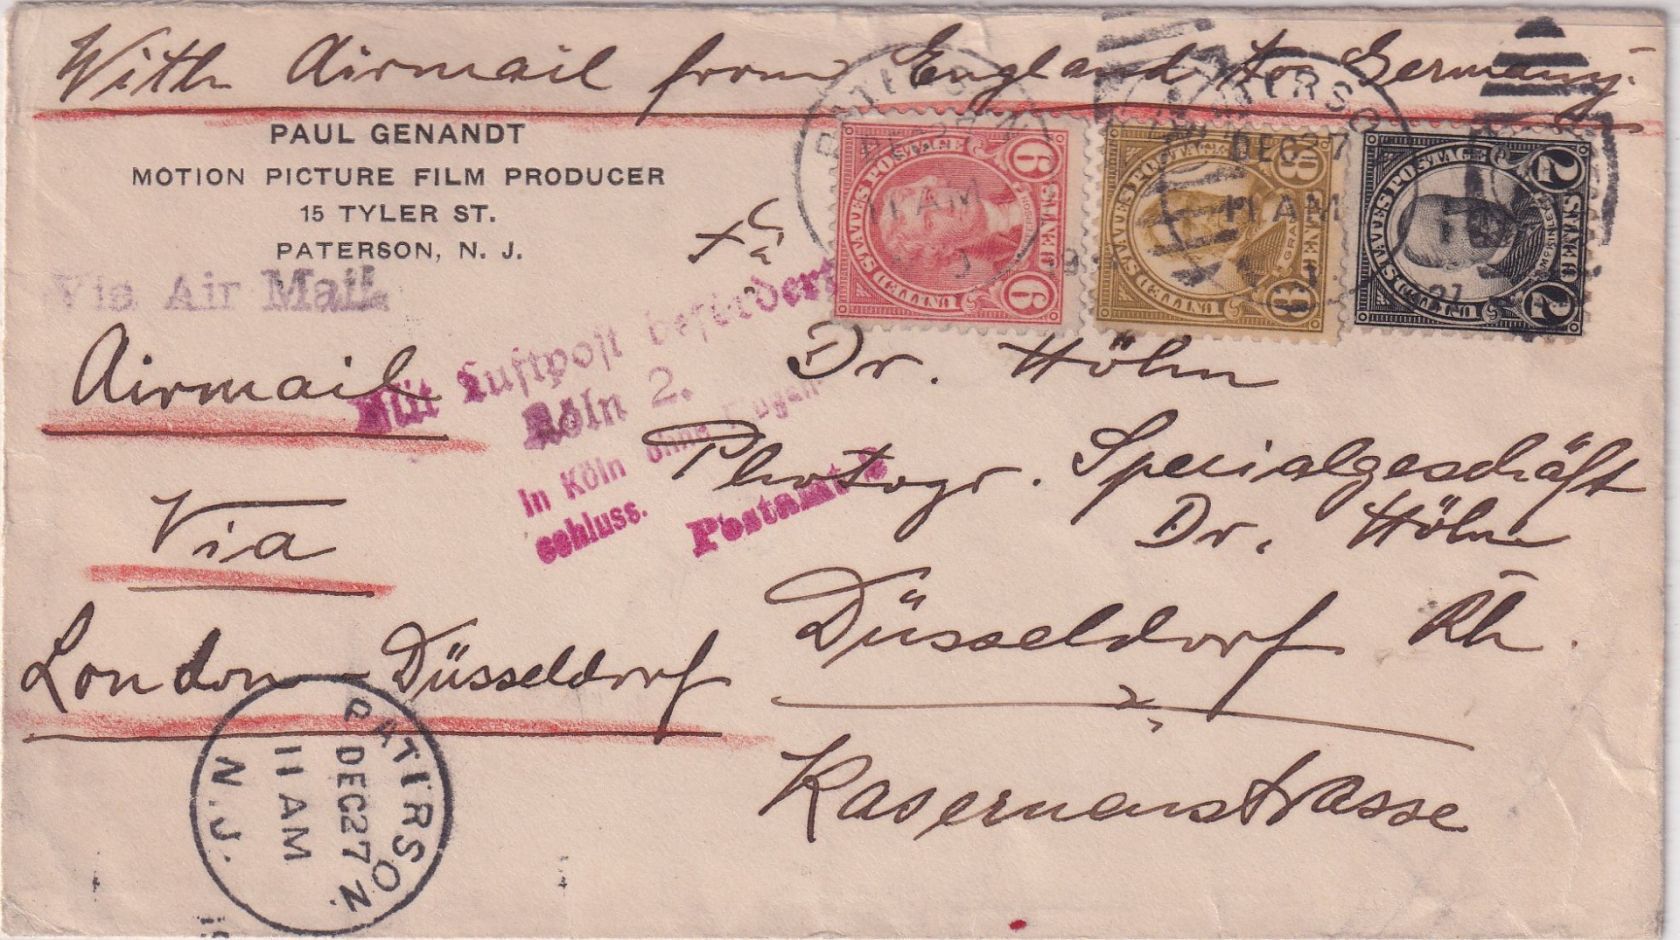 With Airmail from England to Germany.
PAUL GENANDT
MOTION PICTURE FILM PRODUCER
15 TYLER ST.
PATERSON, N. J.
Via Air Mail
Airmail
Via
London - Düsseldorf
Mit Luftpost befördert
Köln 2.
In Köln ohne
schluss.
Postamt 2
PATERSON
11 AM
PATERSO
DEC 27
11 AM
UNITED STATES POSTAGE
9
9
CENTS
UNITED STATES POSTAGE
8
8
GRANT
CENTS
UNITED STATES POSTAGE
7
7
MCKINLEY
CENTS
Dr. Höhn
Photogr. Spezialgeschäft
Dr. Höhn
Düsseldorf Rh.
Kasernenstrasse
PATERSON
DEC 27
11 AM
N.J.